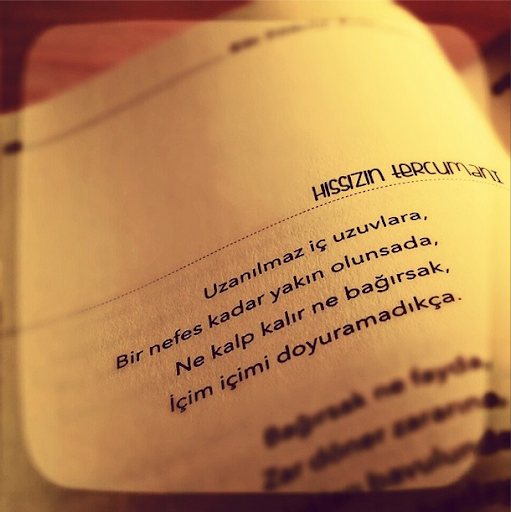 HISSIZIN tERCUMANI
Uzanılmaz iç uzuvlara,
Bir nefes kadar yakın olunsada,
Ne kalp kalır ne bağırsak,
İçim içimi doyuramadıkça.
Bağırsak ne fayda,
Zar döner zararına,